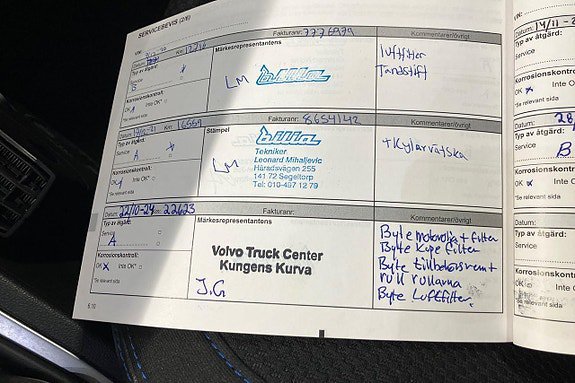 SERVICEBEVIS (2/8)
Fakturanr: 7776979
Kommentarer/övrigt
Datum:
Km:
Typ av åtgärd:
Service
B
Korrosionskontroll:
OK Inte OK*
*Se relevant sida
Märkesrepresentantens
LM bilia
luftfilter
Tändstift
Datum: Km:
Fakturanr: 8654142
Kommentarer/övrigt
Typ av åtgärd:
Service
A
Korrosionskontroll:
OK Inte OK*
*Se relevant sida
Stämpel
LM bilia
Tekniker
Leonard Mihaljevic
Häradsvägen 255
141 72 Segeltorp
Tel: 010-497 12 79
+ Kylarvätska
22/10-24 22623
Fakturanr:
Kommentarer/övrigt
Typ av åtgärd:
Service
A
Korrosionskontroll:
OK x Inte OK*
*Se relevant sida
Märkesrepresentantens
Volvo Truck Center
Kungens Kurva
J.G
Byte motorolja + filter
Byte Kupe filter
Byte tillbehörsremt
rull rullarna
Byte Luftfilter
Datum: 14/11-2
Typ av åtgärd:
Service
Korrosionskontroll:
OK x Inte O
*Se relevant sida
Datum: 28/
Typ av åtgärd:
Service B
Korrosionskontroll:
OK x Inte O
*Se relevant sida
Datum:
Typ av åtgärd:
Service
Korrosionskontroll:
OK Inte O
*Se relevant sida